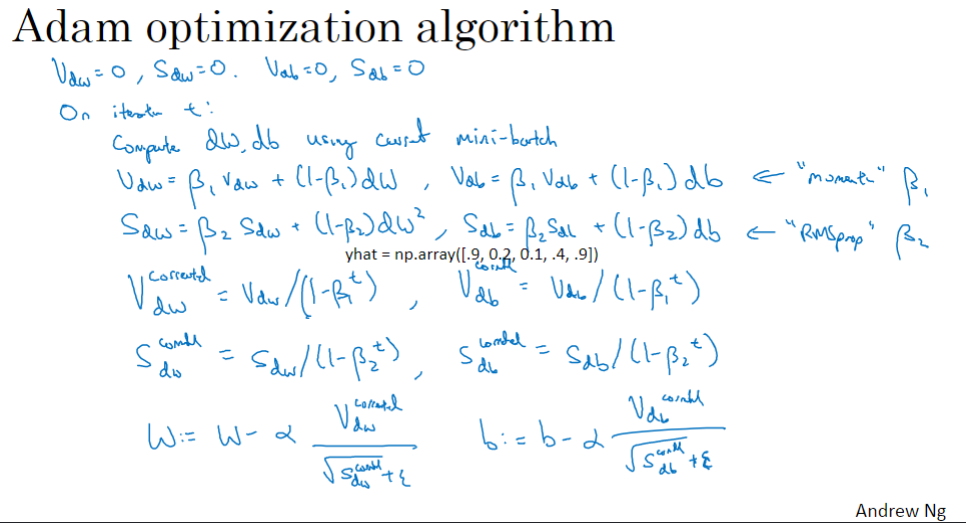 Adam optimization algorithm
V_dw = 0, S_dw = 0. V_db = 0, S_db = 0
On iteration t:
Compute dW, db using current mini-batch
V_dw = β₁ V_dw + (1-β₁) dW , V_db = β₁ V_db + (1-β₁) db ← "moment" β₁
S_dw = β₂ S_dw + (1-β₂) dW² , S_db = β₂ S_db + (1-β₂) db ← "RMSprop" β₂
yhat = np.array([.9, 0.2, 0.1, .4, .9])
V_dw^corrected = V_dw / (1-β₁^t) , V_db^corrected = V_db / (1-β₁^t)
S_dw^corrected = S_dw / (1-β₂^t) , S_db^corrected = S_db / (1-β₂^t)
W := W - α V_dw^corrected / √S_dw^corrected + ε b := b - α V_db^corrected / √S_db^corrected + ε
Andrew Ng